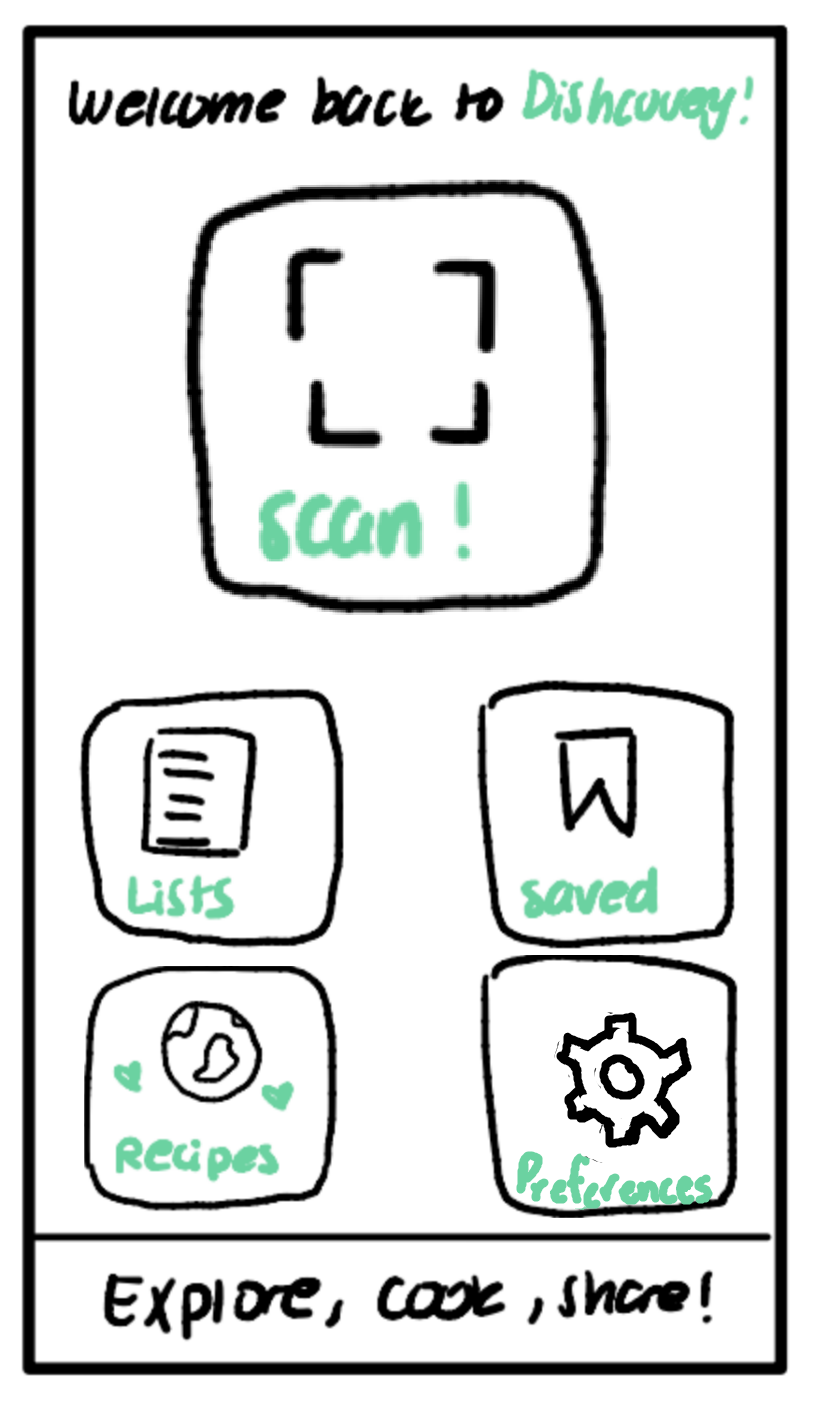 Welcome back to Dishcovey!
scan!
Lists
saved
Recipes
Preferences
Explore, cook, share!